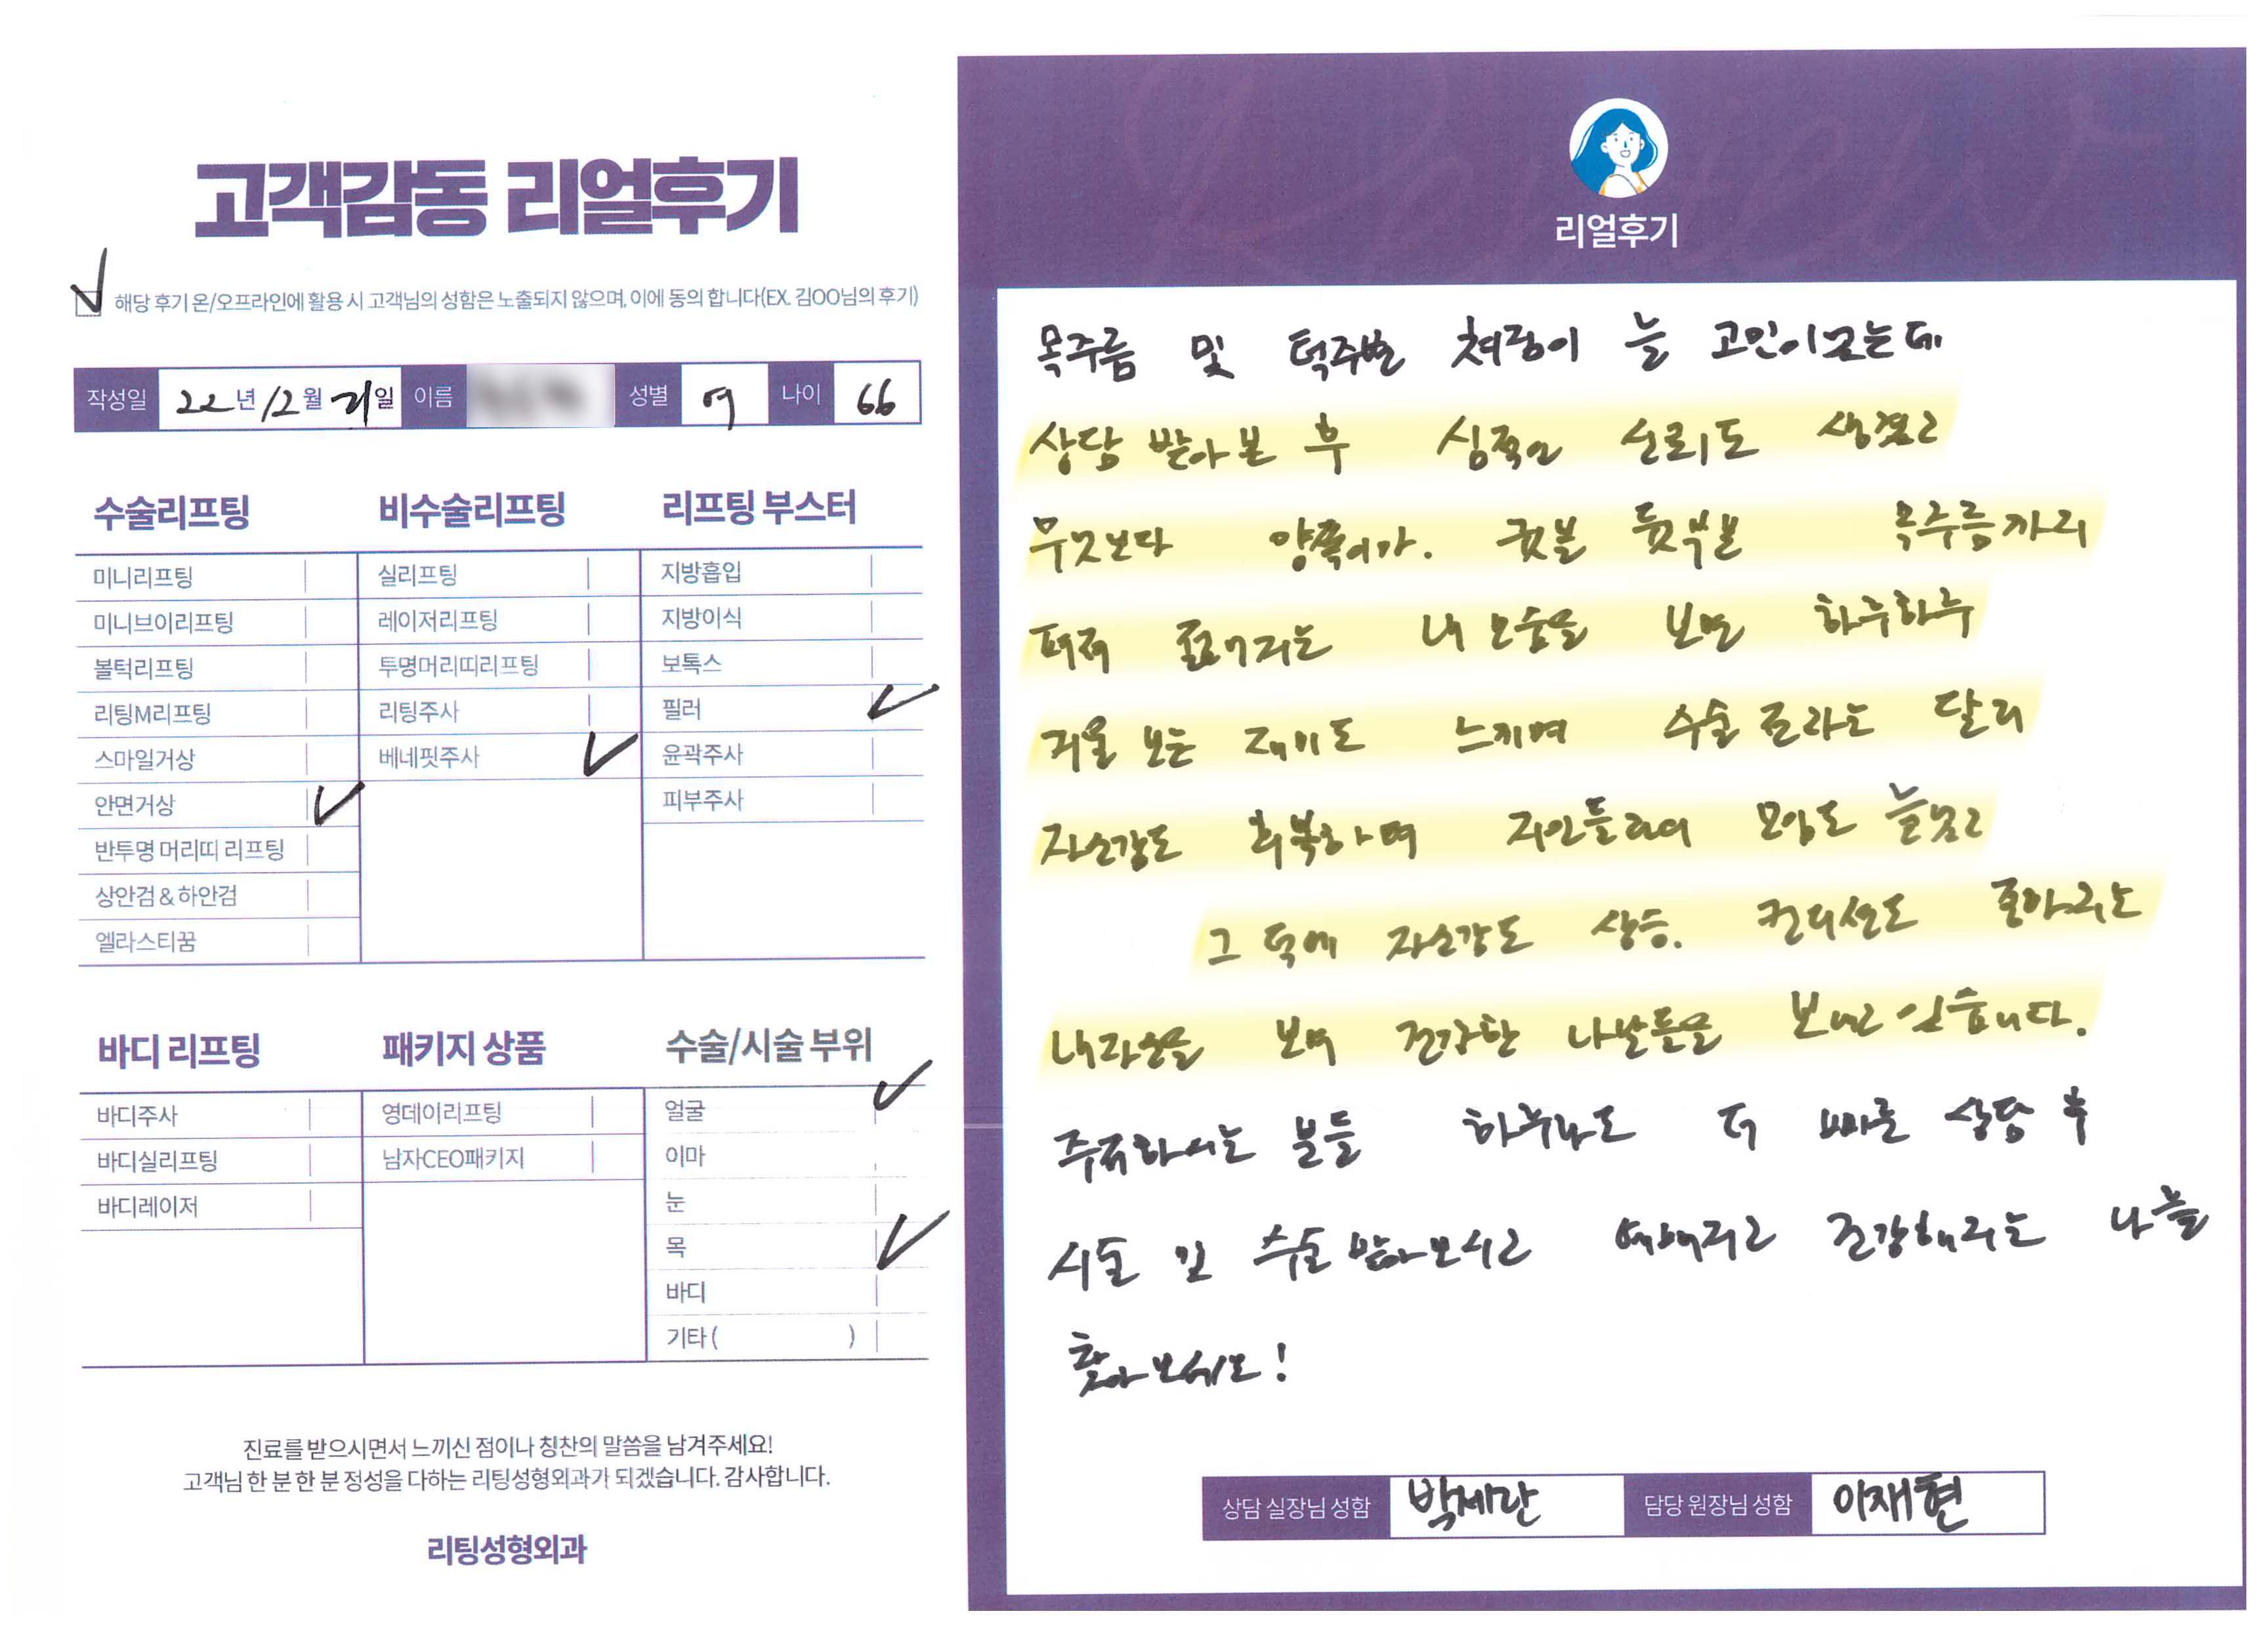 고객감동 리얼후기
해당 후기 온/오프라인에 활용 시 고객님의 성함은 노출되지 않으며, 이에 동의 합니다(EX. 김OO님의 후기)
작성일 22년 12월 21일 이름 성별 여 나이 66
수술리프팅
미니리프팅
미니브이리프팅
볼턱리프팅
리팅M리프팅
스마일거상
안면거상
반투명 머리띠 리프팅
상안검 & 하안검
엘라스티꿈
비수술리프팅
실리프팅
레이저리프팅
투명머리띠리프팅
리팅주사
베네핏주사
리프팅 부스터
지방흡입
지방이식
보톡스
필러
윤곽주사
피부주사
바디 리프팅
바디주사
바디실리프팅
바디레이저
패키지 상품
영데이리프팅
남자CEO패키지
수술/시술 부위
얼굴
이마
눈
목
바디
기타 ( )
진료를 받으시면서 느끼신 점이나 칭찬의 말씀을 남겨주세요!
고객님 한 분 한 분 정성을 다하는 리팅성형외과가 되겠습니다. 감사합니다.
리팅성형외과
리얼후기
목주름 및 턱주변 쳐짐이 늘 고민이었는데
상담 받아본 후 심적인 신뢰도 생겼고
무엇보다 양쪽이가. 귓볼 뒷부분 목주름까지
펴져 좋아지는 내 모습을 보면 하루하루
거울 보는 재미도 느끼며 수술 전과는 달리
자신감도 회복하며 지인들과의 모임도 늘었고
그 덕에 자신감도 상승. 컨디션도 좋아지는
내자신을 보며 건강한 나날들을 보내고 있습니다.
주저하시는 분들 하루라도 더 빠른 상담 후
시술 및 수술 받아보시고 예뻐지고 건강해지는 나를
찾아보세요!
상담 실장님 성함 박세란 담당 원장님 성함 이재현